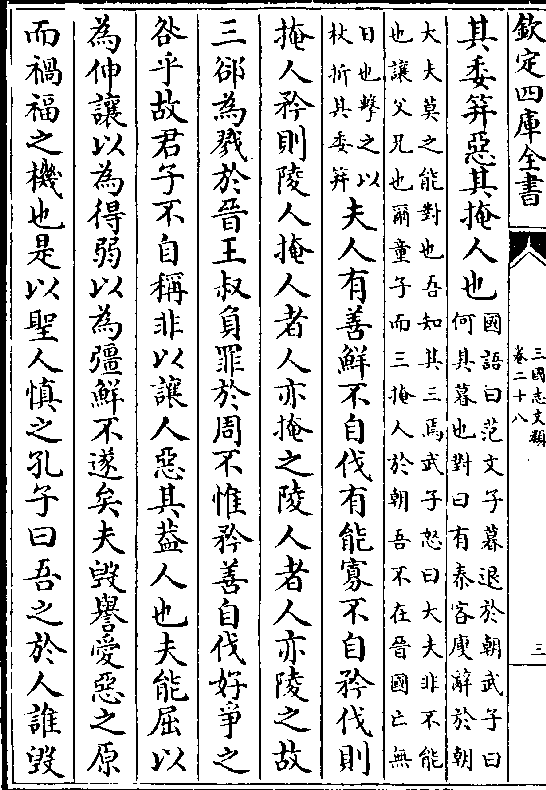 欽定四庫全書
三國志文類
卷二十八
三
其委筓惡其掩人也國語曰范文子暮退於朝武子曰
何其暮也對曰有秦客廋辭於朝
大夫莫之能對也吾知其三焉武子怒曰大夫非不能
也讓父兄也爾童子而三掩人於朝吾不在晉國亡無
日也擊之以
杖折其委筓夫人有善鮮不自伐有能寡不自矜伐則
掩人矜則陵人掩人者人亦掩之陵人者人亦陵之故
三郤為戮於晉王叔負罪於周不惟矜善自伐好爭之
咎乎故君子不自稱非以讓人惡其葢人也夫能屈以
為伸讓以為得弱以為彊鮮不遂矣夫毀譽愛惡之原
而禍福之機也是以聖人慎之孔子曰吾之於人誰毀